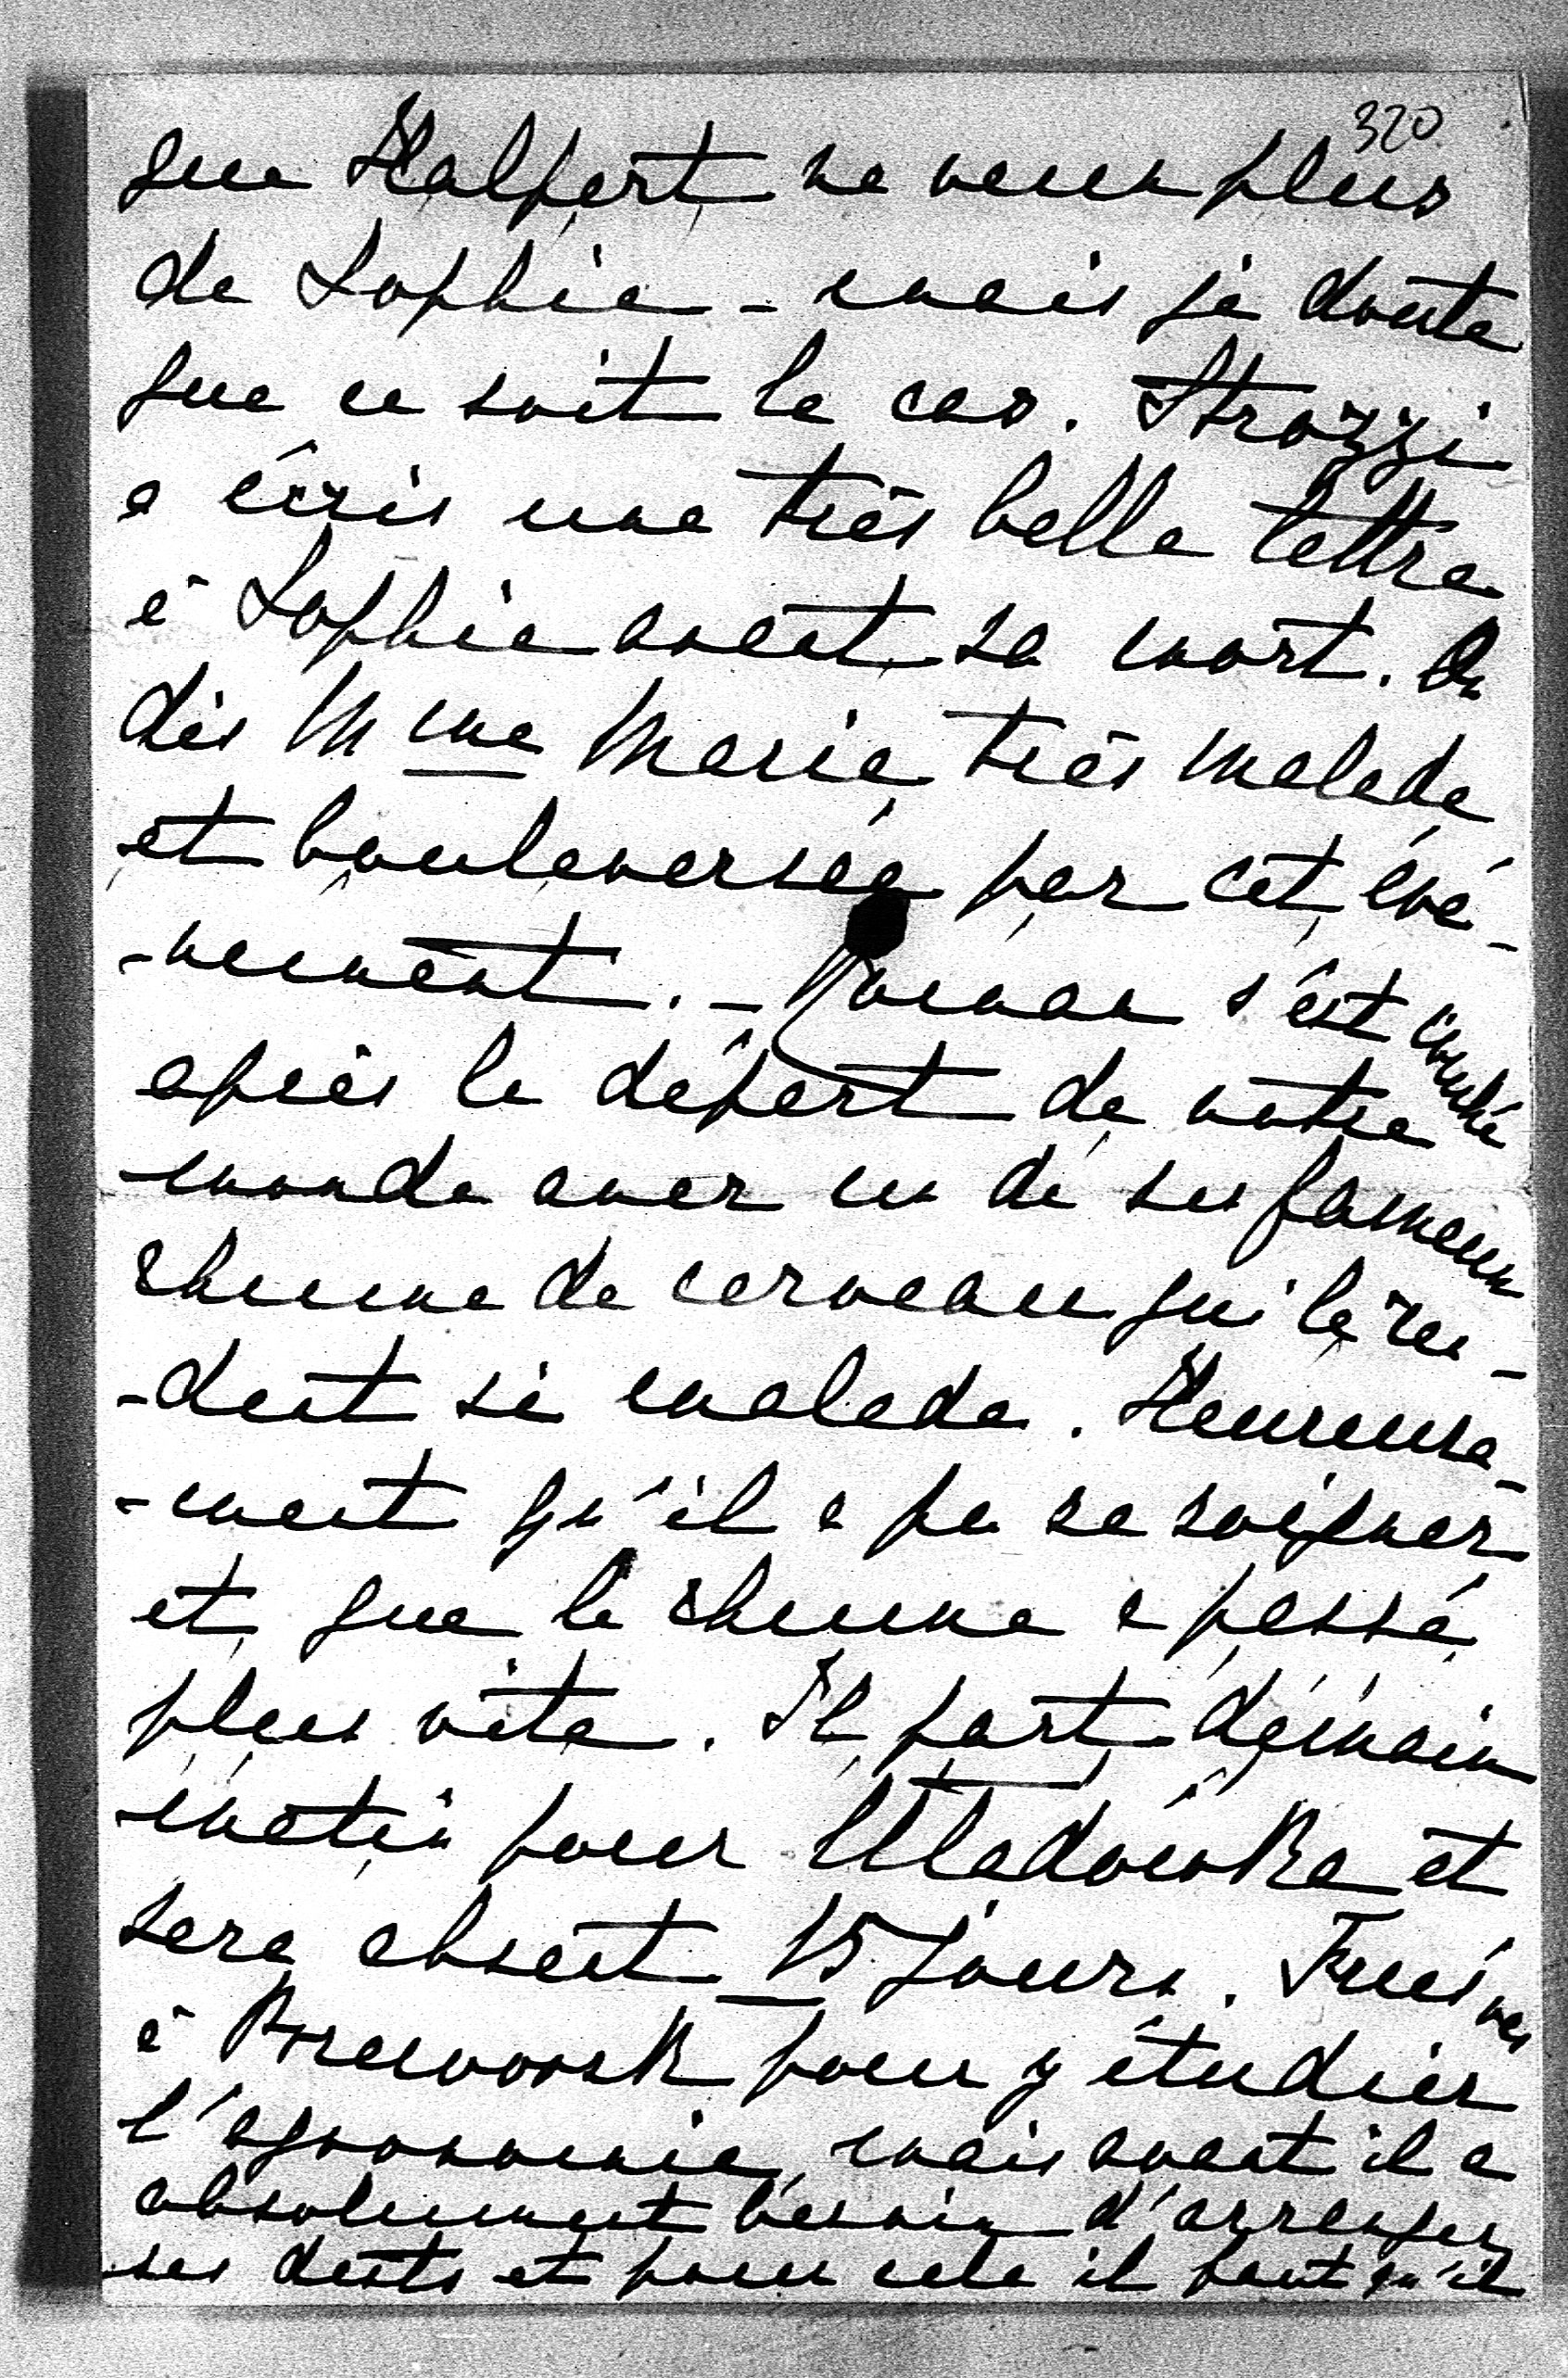 320
que Halpert ne veux plus
de Sophie - mais je doute
que ce soit le cas. Strozzi
a écris une très belle lettre
à Sophie avant sa mort. On
dis Mme Marie très malade
et bouleversée par cet évé-
-nement. - Roman s'est couché
après le départ de notre
monde avec un de ses fameux
rhume de cerveau qui le ren-
-dent si malade. Heureuse-
-ment qu'il a pu se soigner
et que le rhume a passé
plus vite. Il part demain
matin pour Uladówka et
sera absent 15 jours. Puis vers
à Przeworsk pour y étudier
l'agronomie, mais avant il a
absolument besoin d'arranger
ses dents et pour cela il faut qu'il